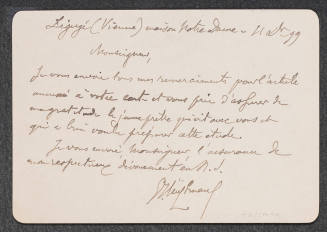 Ligugé (Vienne) maison Notre Dame - 11 Dbr 99
Monseigneur,
Je vous envoie tous mes remerciements pour l'article
annoncé à votre et vous prie d'assurer de
ma gratitude le jeune prêtre qui vit avec vous et
qui a bien voulu préparer cette étude.
Je vous envoie Monseigneur l'assurance de
mon respectueux dévouement en N.S.
G Huysmans